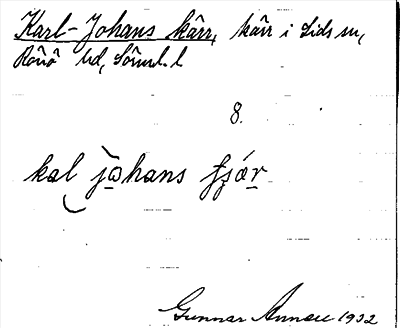 Karl-Johans kärr, kärr i Lids sn,
Rönö hd, Sörml. l
8.
kal johans
Gunnar 1932